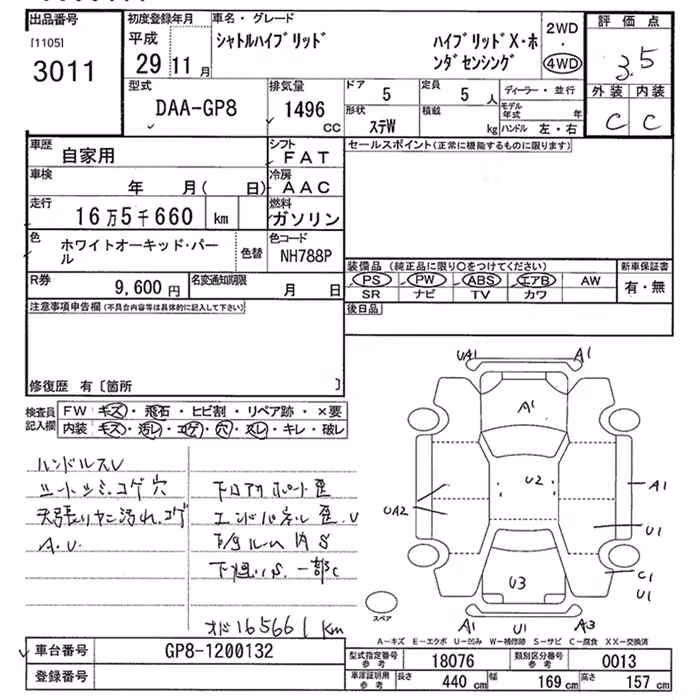 出品番号
[1105]
3011
初度登録年月
平成
29 11 月
車名・グレード
シャトルハイブリッド
ハイブリッドX・ホ
ンダセンシング
2WD
・
4WD
評価点
3.5
外装 内装
C C
型式
DAA-GP8
排気量
1496
CC
ドア
5
定員
5 人
形状
ステW
積載
kg
ディーラー・並行
モデル年式 年
ハンドル 左・右
車歴
自家用
シフト
FAT
車検
年 月( 日)
冷房
AAC
走行
16万5千660 km
燃料
ガソリン
色
ホワイトオーキッド・パー
ル
色替
色コード
NH788P
R券
9,600 円
名変通知期限
月 日
セールスポイント(正常に機能するものに限ります)
装備品 (純正品に限り○をつけてください)
新車保証書
PS PW ABS エアB AW
有・無
SR ナビ TV カワ
後日品
注意事項申告欄(不具合内容等は具体的に記入して下さい)
修復歴 有〔箇所 〕
検査員
記入欄
FW キズ・飛石・ヒビ割・リペア跡・×要
内装 キズ・汚レ・コゲ・穴・スレ・キレ・破レ
ハンドルスレ
シートシミ.コゲ穴
天張りヤニ汚れ.コゲ
A.U.
エンドパネル歪.U
下廻りS.一部C
オド165661km
UA1 A1
A1
U2
UA2
A1
U1
U3
C1
U1
A1 U1 A3
スペア
A-キズ E-エクボ U-凹み W-補修跡 S-サビ C-腐食 XX-交換済
車台番号
GP8-1200132
登録番号
型式指定番号
参考
18076
類別区分番号
参考
0013
車庫証明用
参考
長さ 440 cm 幅 169 cm 高さ 157 cm